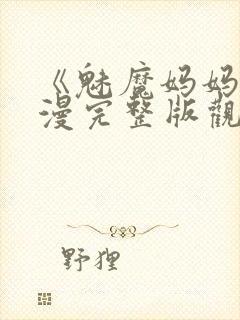 《魅魔妈妈
漫完整版觀
野狸